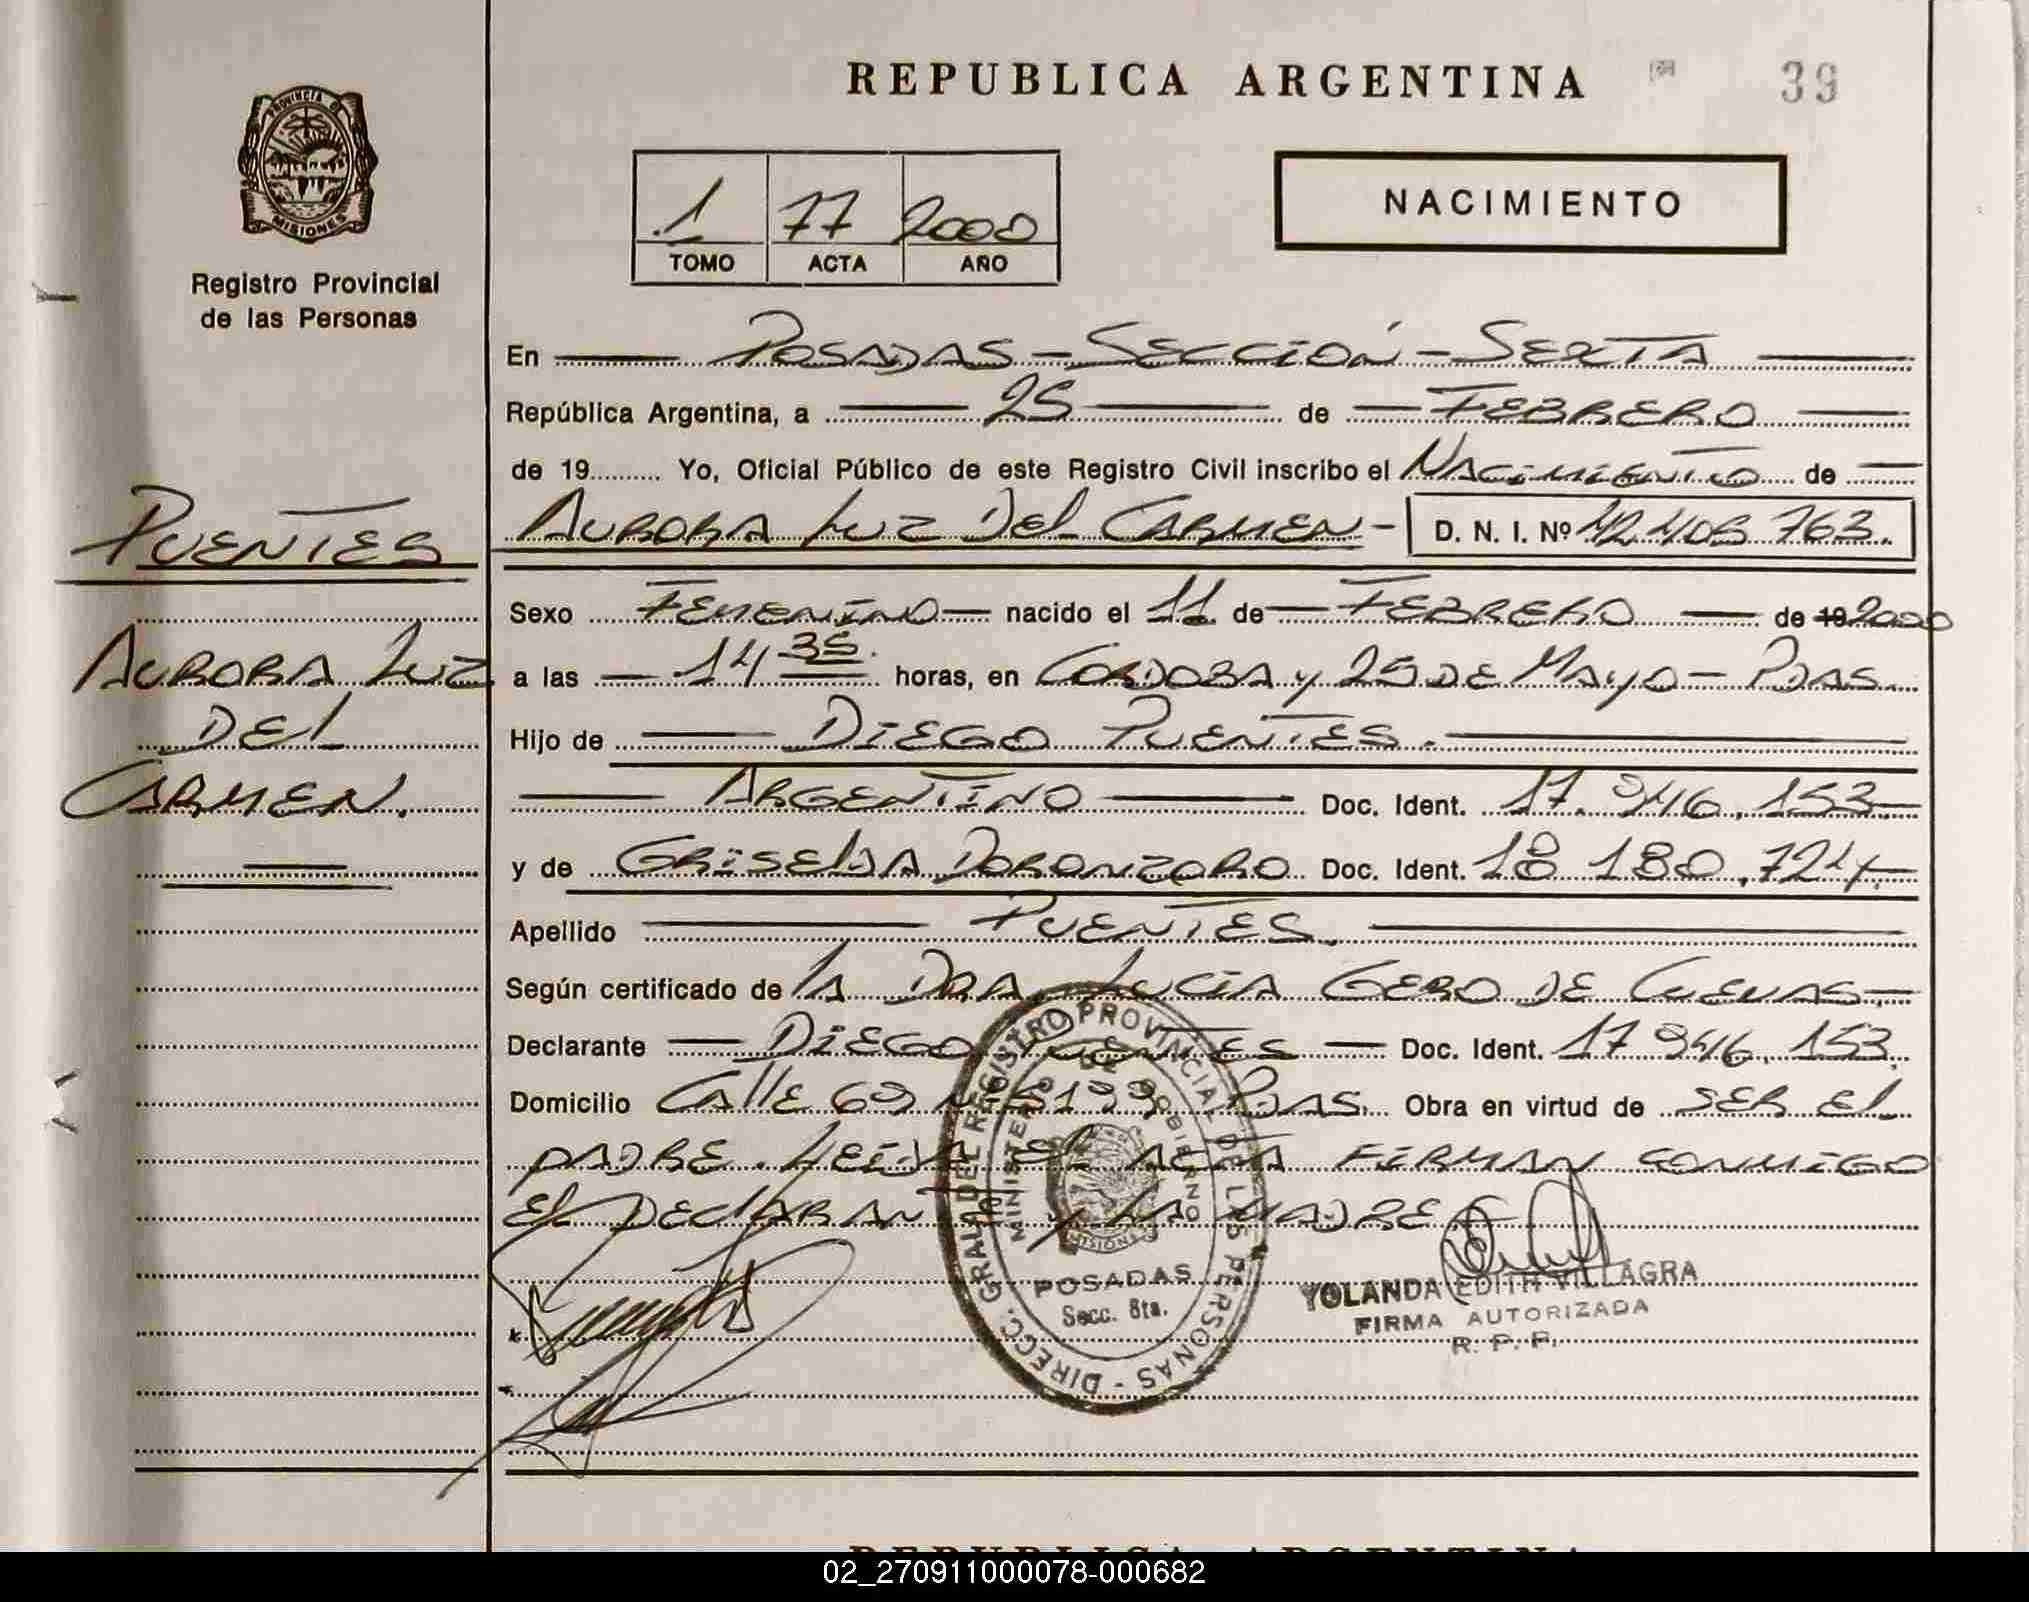 REPUBLICA ARGENTINA
39
PROVINCIA DE
MISIONES
Registro Provincial
de las Personas
1 77 2000
TOMO ACTA AÑO
NACIMIENTO
En POSADAS - SECCIÓN - SEXTA
República Argentina, a 25 de FEBRERO
de 19 Yo, Oficial Público de este Registro Civil inscribo el NACIMIENTO de
AURORA LUZ DEL CARMEN - D. N. I. Nº 42.408.763.
Sexo FEMENINO nacido el 11 de FEBRERO de 19 2000
a las 14 35. horas, en CORDOBA y 25 DE MAYO - PDAS.
Hijo de DIEGO PUENTES.
ARGENTINO Doc. Ident. 17.946.153
y de GRISELDA DORONZORO Doc. Ident. 18 180.724.
Apellido PUENTES.
Según certificado de LA DRA. LUCIA GERO DE CUEVAS.
Declarante DIEGO PUENTES Doc. Ident. 17 946.153.
Domicilio CALLE 69 Nº 5199 PDAS. Obra en virtud de SER EL
PADRE. LEIDA EL ACTA FIRMAN CONMIGO
EL DECLARANTE y LA MADRE
PUENTES
AURORA LUZ
DEL
CARMEN.
DIRECC. GRAL. DEL REGISTRO PROVINCIAL DE LAS PERSONAS -
MINISTERIO DE GOBIERNO
MISIONES
POSADAS
Secc. 6ta.
YOLANDA EDITH VILLAGRA
FIRMA AUTORIZADA
R. P. P.
REPUBLICA ARGENTINA
02_270911000078-000682